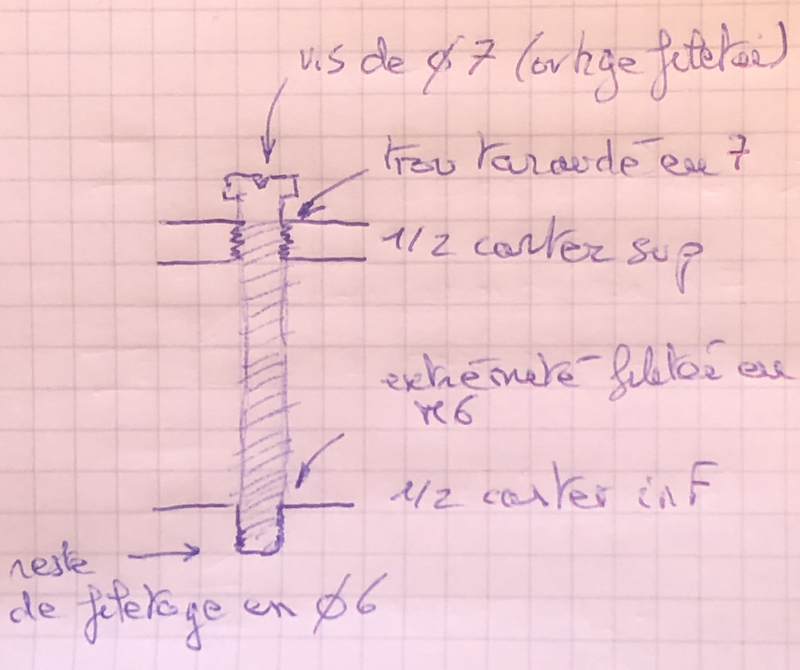 vis de ø 7 (ou tige filetée)
trou taraudé en 7
1/2 carter sup
extrémité filetée en
M6
1/2 carter inf
reste
de filetage en ø6